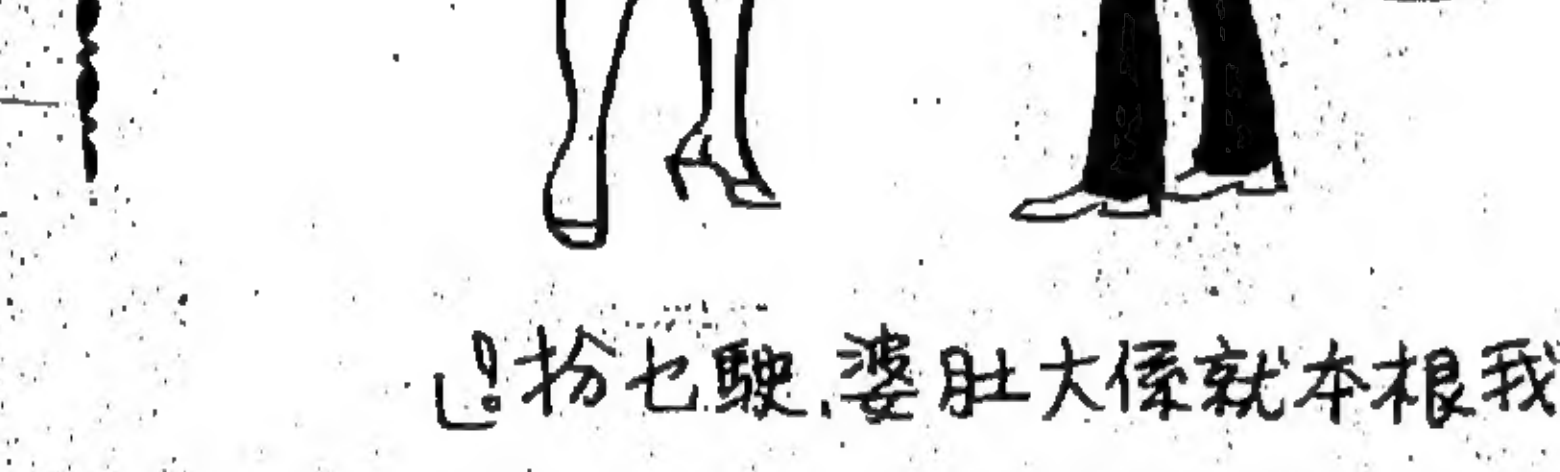 我根本就係大肚婆，駛乜扮！」